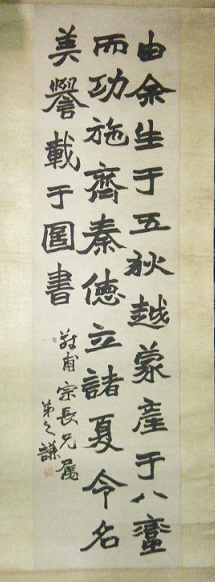 由余生于五狄越蒙產于八蠻
而功施齊秦德立諸夏令名
美譽載于圖書
敬甫宗長兄屬
弟之謙